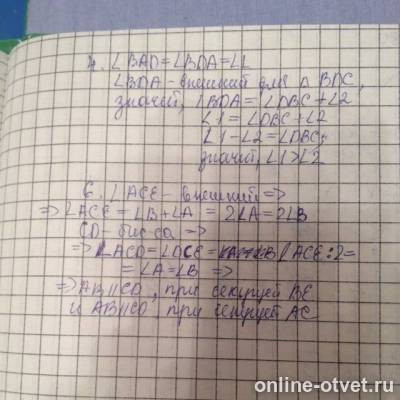 4. ∠BAD = ∠BDA = ∠1
∠BDA - внешний для △ BDC,
значит, ∠BDA = ∠DBC + ∠2
∠1 = ∠DBC + ∠2
∠1 - ∠2 = ∠DBC;
значит, ∠1 > ∠2
6. ∠ACE - внешний =>
=> ∠ACE = ∠B + ∠A = 2∠A = 2∠B
CD - бис-са =>
=> ∠ACD = ∠DCE = ∠ACE : 2 =
= ∠A = ∠B =>
=> AB || CD, при секущей BE
и AB || CD, при секущей AC
online-otvet.ru